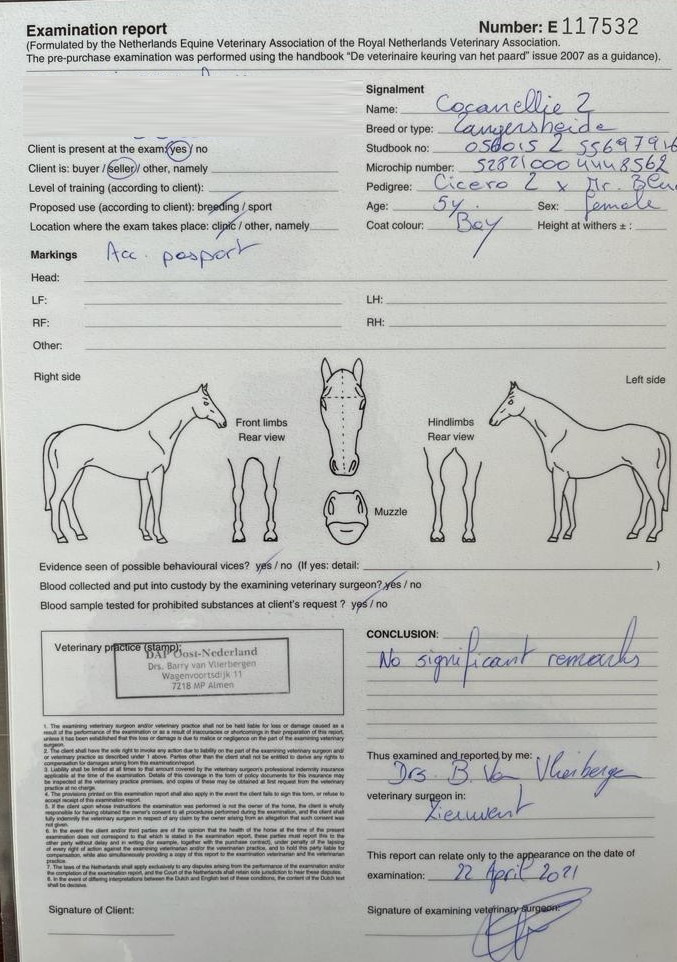 Examination report
Number: E 117532
(Formulated by the Netherlands Equine Veterinary Association of the Royal Netherlands Veterinary Association.
The pre-purchase examination was performed using the handbook "De veterinaire keuring van het paard" issue 2007 as a guidance).
Signalment
Name: Cocanellie 2
Breed or type: Zangersheide
Studbook no: 056015 Z 55697916
Microchip number: 528210004448562
Pedigree: Cicero Z x Mr. Blu
Age: 5y. Sex: female
Coat colour: Bay Height at withers ± :
Client is present at the exam: yes / no
Client is: buyer / seller / other, namely
Level of training (according to client):
Proposed use (according to client): breeding / sport
Location where the exam takes place: clinic / other, namely
Markings Acc. pasport
Head:
LF: LH:
RF: RH:
Other:
Right side
Left side
Front limbs
Rear view
Hindlimbs
Rear view
Muzzle
Evidence seen of possible behavioural vices? yes / no (If yes: detail: )
Blood collected and put into custody by the examining veterinary surgeon? yes / no
Blood sample tested for prohibited substances at client's request ? yes / no
Veterinary practice (stamp):
DAP Oost-Nederland
Drs. Barry van Vlierbergen
Wagenvoortsdijk 11
7218 MP Almen
1. The examining veterinary surgeon and/or veterinary practice shall not be held liable for loss or damage caused as a
result of the performance of the examination or as a result of inaccuracies or shortcomings in their preparation of this report,
unless it has been established that this loss or damage is due to malice or negligence on the part of the examining veterinary
surgeon.
2. The client shall have the sole right to invoke any action due to liability on the part of the examining veterinary surgeon and/
or veterinary practice as described under 1 above. Parties other than the client shall not be entitled to derive any rights to
compensation for damages arising from this examination/report.
3. Liability shall be limited at all times to that amount covered by the veterinary surgeon's professional indemnity insurance
applicable at the time of the examination. Details of this coverage in the form of policy documents for this insurance may
be inspected at the veterinary practice premises, and copies of these may be obtained at first request from the veterinary
practice at no charge.
4. The provisions printed on this examination report shall also apply in the event the client fails to sign this, or refuse to
accept receipt of this examination report.
5. If the client upon whose instructions the examination was performed is not the owner of the horse, the client is wholly
responsible for having obtained the owner's consent to all procedures performed during the examination, and the client shall
fully indemnify the veterinary surgeon in respect of any claim by the owner arising from an allegation that such consent was
not given.
6. In the event the client and/or third parties are of the opinion that the health of the horse at the time of the present
examination does not correspond to that which is stated in the examination report, these parties must report this to the
other party without delay and in writing (for example, together with the purchase contract), under penalty of the lapsing
of every right of action against the examining veterinarian and/or the veterinary practice, and to hold this party liable for
compensation, while also simultaneously providing a copy of this report to the examination veterinarian and the veterinarian
practice.
7. The laws of the Netherlands shall apply exclusively to any disputes arising from the performance of the examination and/or
the completion of the examination report, and the Court of the Netherlands shall retain sole jurisdiction to hear these disputes.
8. In the event of differing interpretations between the Dutch and English text of these conditions, the content of the Dutch text
shall be decisive.
CONCLUSION:
No significant remarks
Thus examined and reported by me:
Drs. B. Van Vlierbergen
veterinary surgeon in:
Zieuwent
This report can relate only to the appearance on the date of
examination: 22 April 2021
Signature of Client:
Signature of examining veterinary surgeon: